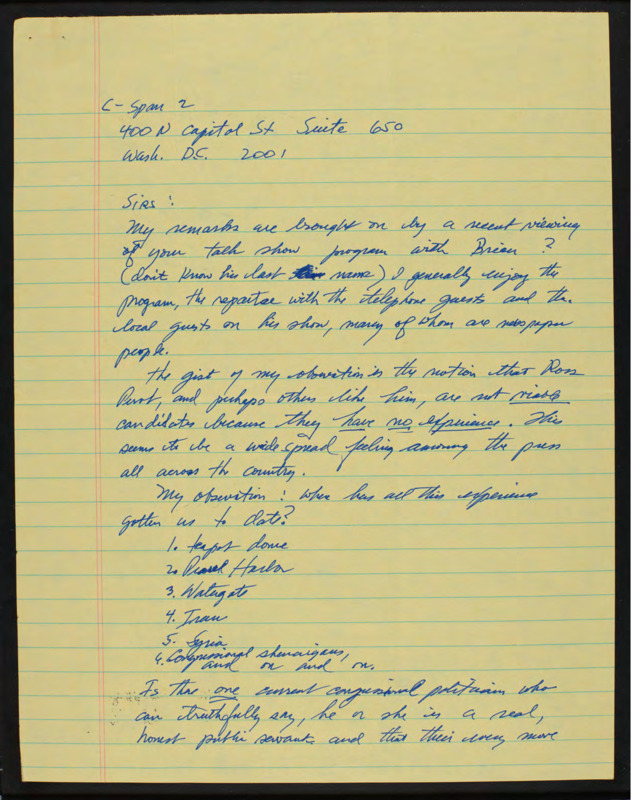 C-Span 2
400 N Capitol St Suite 650
Wash. D.C. 2001
Sirs:
My remarks are brought on by a recent viewing
of your talk show program with Brian ?
(don't know his last name) I generally enjoy the
program, the repartae with the telephone guests and the
local guests on his show, many of whom are newspaper
people.
The gist of my observation is the notion that Ross
Perot, and perhaps others like him, are not viable
candidates because they have no experience. This
seems to be a wide spread feeling among the press
all across the country.
My observation: where has all this experience
gotten us to date?
1. teapot dome
2. Pearl Harbor
3. Watergate
4. Iran
5. Syria
6. Congressional shenanigans,
and on and on.
Is there one current congressional politician who
can truthfully say, he or she is a real,
honest public servant and that their every move